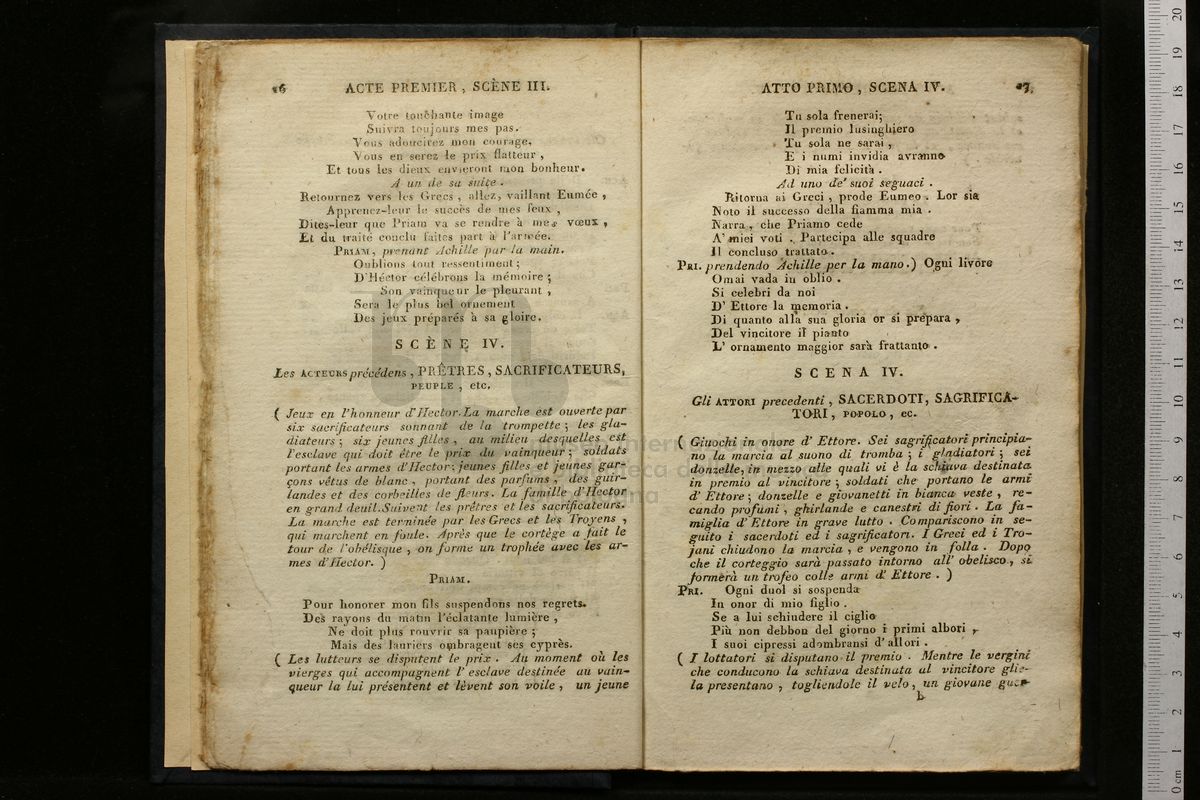 16 ACTE PREMIER, SCÈNE III.
Votre touchante image
Suivra toujours mes pas.
Vous adoucirez mon courage,
Vous en serez le prix flatteur,
Et tous les dieux envieront mon bonheur.
A un de sa suite.
Retournez vers les Grecs, allez, vaillant Eumée,
Apprenez-leur le succès de mes feux,
Dites-leur que Priam va se rendre à mes vœux,
Et du traité conclu faites part à l'armée.
PRIAM, prenant Achille par la main.
Oublions tout ressentiment;
D'Héctor célébrons la mémoire;
Son vainqueur le pleurant,
Sera le plus bel ornement
Des jeux préparés à sa gloire.
SCÈNE IV.
Les ACTEURS précédens, PRÊTRES, SACRIFICATEURS,
PEUPLE, etc.
( Jeux en l'honneur d'Hector. La marche est ouverte par
six sacrificateurs sonnant de la trompette; les gla-
diateurs; six jeunes filles, au milieu desquelles est
l'esclave qui doit être le prix du vainqueur; soldats
portant les armes d'Hector; jeunes filles et jeunes gar-
çons vêtus de blanc, portant des parfums, des guir-
landes et des corbeilles de fleurs. La famille d'Hector
en grand deuil. Suivent les prêtres et les sacrificateurs.
La marche est terminée par les Grecs et les Troyens,
qui marchent en foule. Après que le cortège a fait le
tour de l'obélisque, on forme un trophée avec les ar-
mes d'Hector. )
PRIAM.
Pour honorer mon fils suspendons nos regrets.
Des rayons du matin l'éclatante lumière,
Ne doit plus rouvrir sa paupière;
Mais des lauriers ombragent ses cyprès.
( Les lutteurs se disputent le prix. Au moment où les
vierges qui accompagnent l'esclave destinée au vain-
queur la lui présentent et lèvent son voile, un jeune
ATTO PRIMO, SCENA IV. 17
Tu sola frenerai;
Il premio lusinghiero
Tu sola ne sarai,
E i numi invidia avranno
Di mia felicità.
Ad uno de' suoi seguaci.
Ritorna ai Greci, prode Eumeo. Lor sia
Noto il successo della fiamma mia.
Narra, che Priamo cede
A' miei voti. Partecipa alle squadre
Il concluso trattato.
PRI. prendendo Achille per la mano.) Ogni livore
Omai vada in oblio.
Si celebri da noi
D' Ettore la memoria.
Di quanto alla sua gloria or si prepara,
Del vincitore il pianto
L' ornamento maggior sarà frattanto.
SCENA IV.
Gli ATTORI precedenti, SACERDOTI, SAGRIFICA-
TORI, POPOLO, ec.
( Giuochi in onore d' Ettore. Sei sagrificatori principia-
no la marcia al suono di tromba; i gladiatori; sei
donzelle, in mezzo alle quali vi è la schiava destinata
in premio al vincitore; soldati che portano le armi
d' Ettore; donzelle e giovanetti in bianca veste, re-
cando profumi, ghirlande e canestri di fiori. La fa-
miglia d' Ettore in grave lutto. Compariscono in se-
guito i sacerdoti ed i sagrificatori. I Greci ed i Tro-
jani chiudono la marcia, e vengono in folla. Dopo
che il corteggio sarà passato intorno all' obelisco, si
formerà un trofeo colle armi d' Ettore. )
PRI. Ogni duol si sospenda
In onor di mio figlio.
Se a lui schiudere il ciglio
Più non debbon del giorno i primi albori,
I suoi cipressi adombransi d' allori.
( I lottatori si disputano il premio. Mentre le vergini
che conducono la schiava destinata al vincitore glie-
la presentano, togliendole il velo, un giovane guer-
b